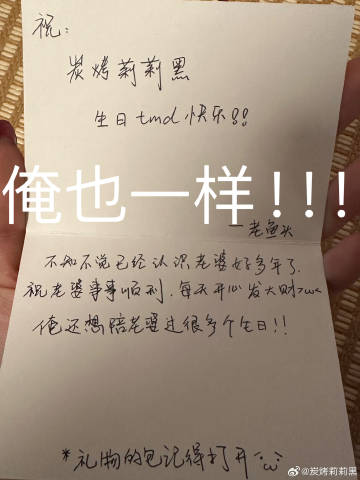 祝：
炭烤莉莉黑
生日tmd快乐!!
俺也一样!!!
—老鱼头
不知不觉已经认识老婆好多年了.
祝老婆事事顺利，每天开心发大财>w<
俺还想陪老婆过很多个生日!!
*礼物的包记得打开^ω^
@炭烤莉莉黑